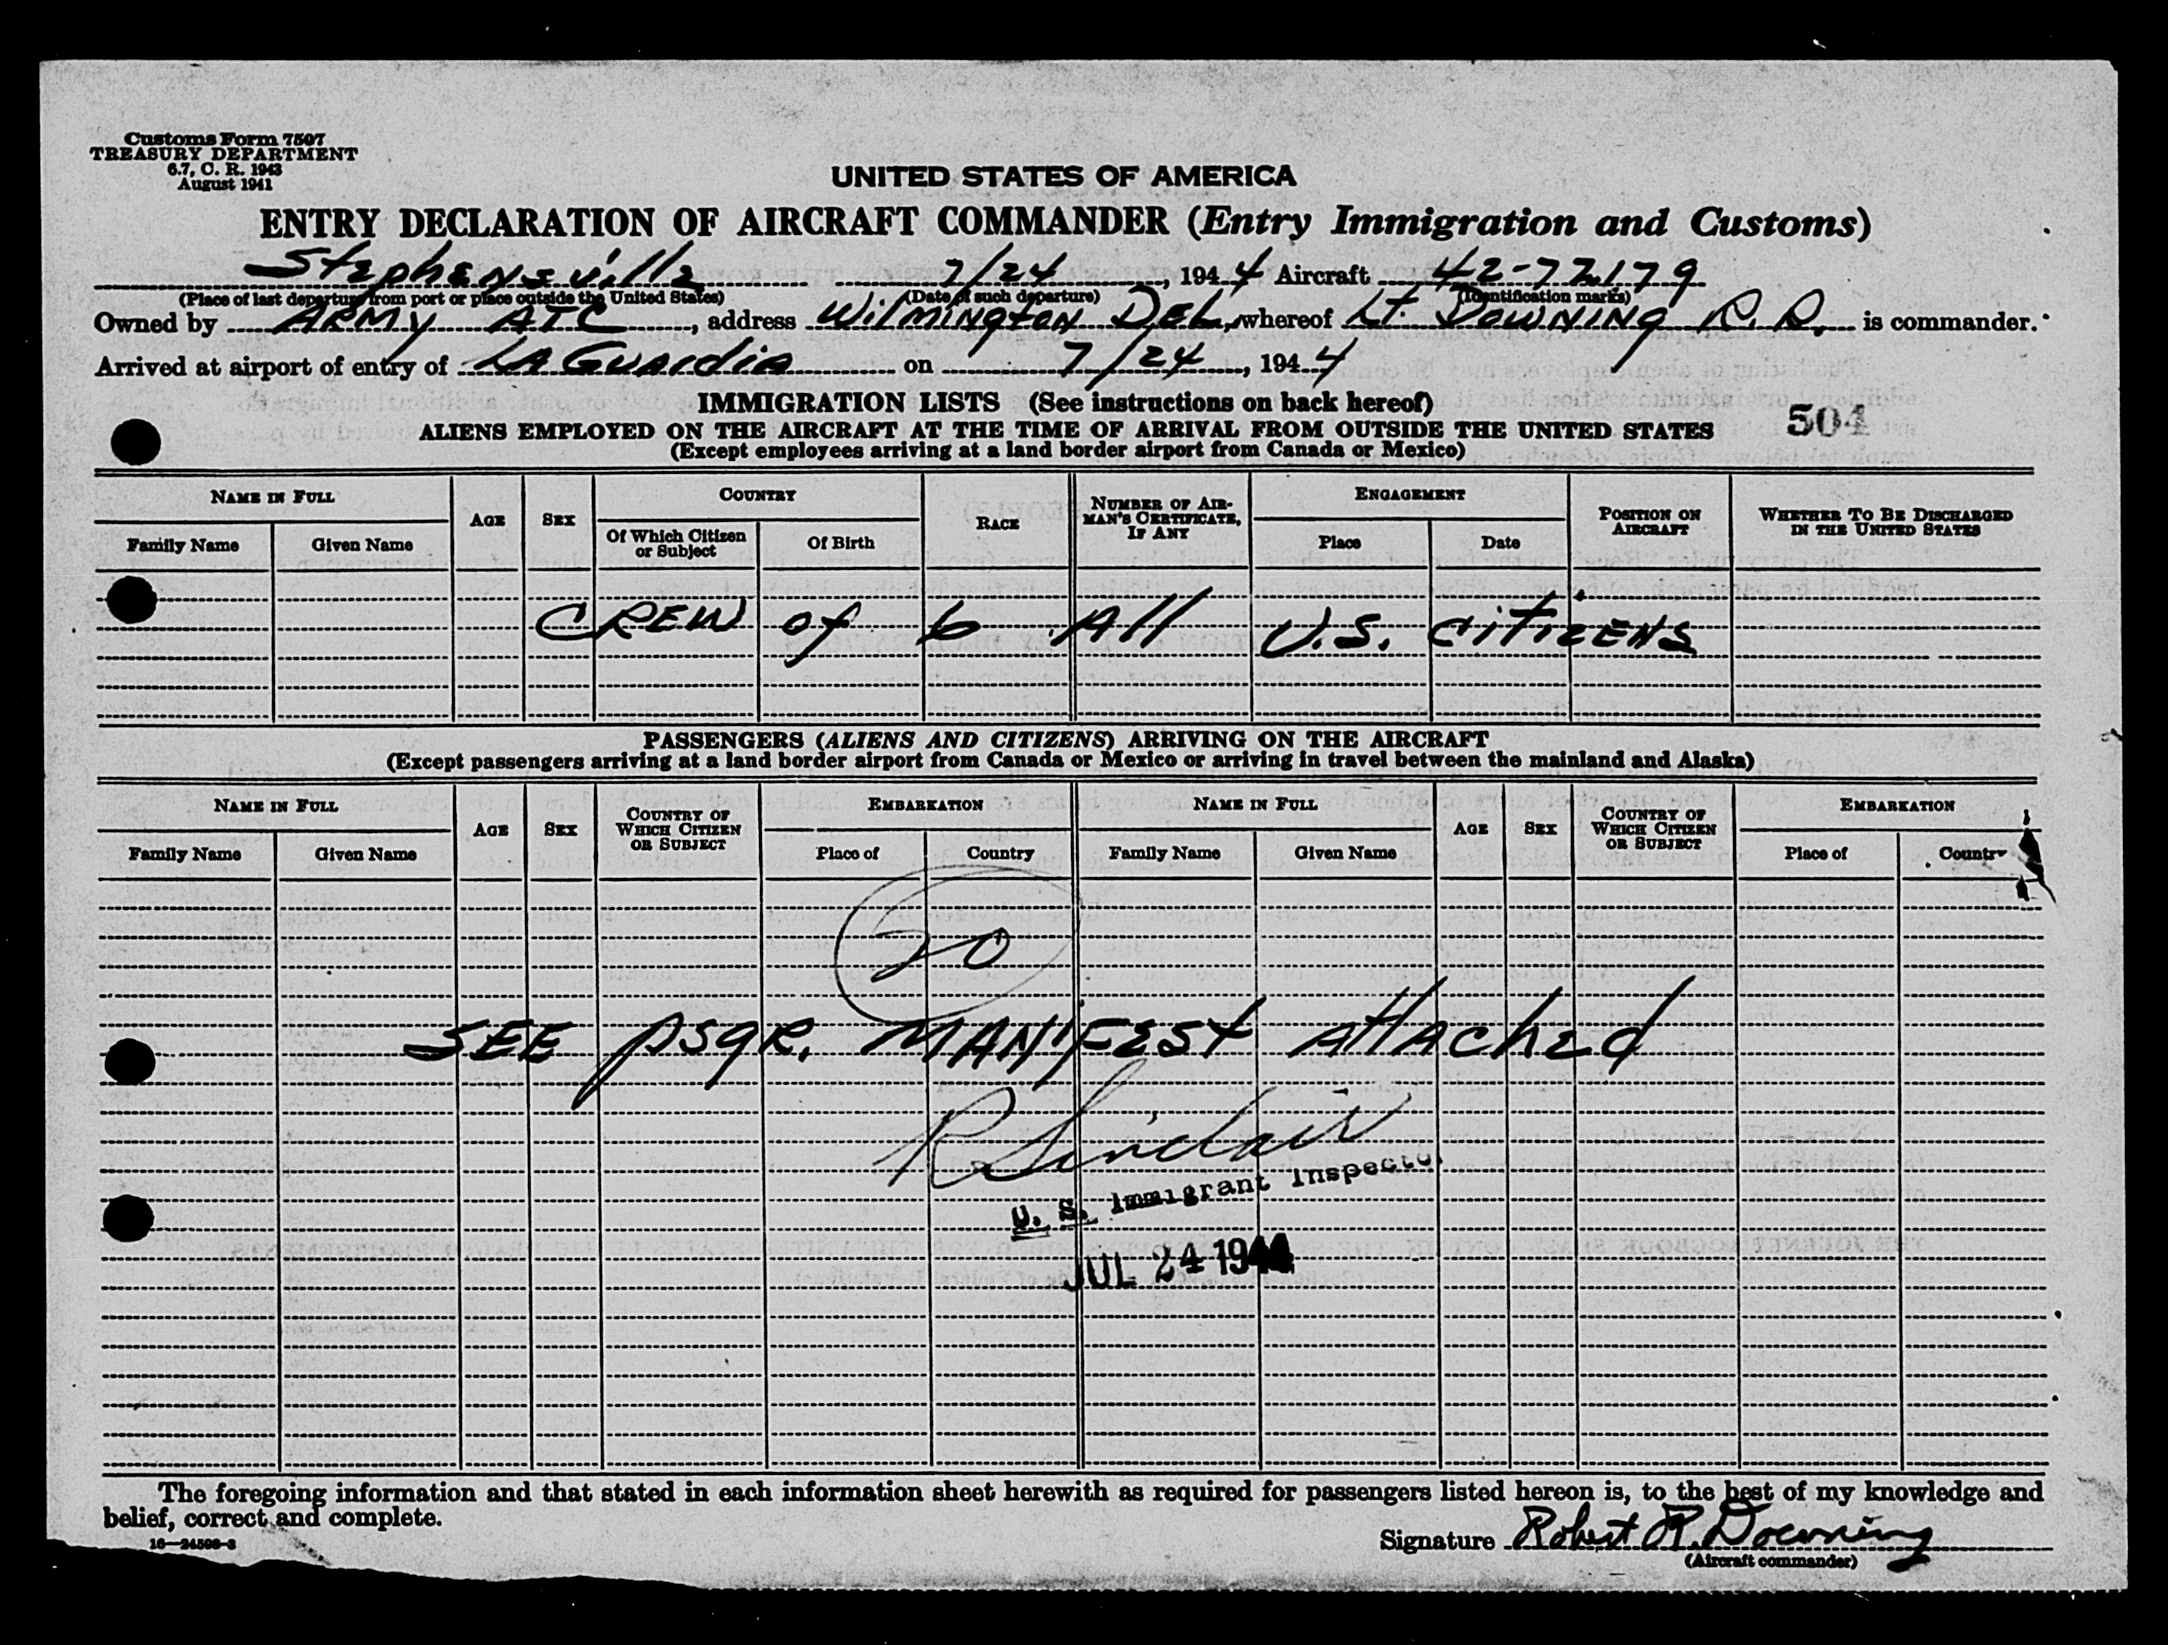 Customs Form 7507
TREASURY DEPARTMENT
6.7, C. R. 1943
August 1941
UNITED STATES OF AMERICA
ENTRY DECLARATION OF AIRCRAFT COMMANDER (Entry Immigration and Customs)
Stephensville 7/24, 1944 Aircraft 42-72179
(Place of last departure from port or place outside the United States) (Date of such departure) (Identification marks)
Owned by ARMY ATC, address Wilmington Del, whereof Lt. Downing R. R. is commander.
Arrived at airport of entry of LA Guardia on 7/24, 1944
IMMIGRATION LISTS (See instructions on back hereof)
504
ALIENS EMPLOYED ON THE AIRCRAFT AT THE TIME OF ARRIVAL FROM OUTSIDE THE UNITED STATES
(Except employees arriving at a land border airport from Canada or Mexico)
NAME IN FULL AGE SEX COUNTRY RACE NUMBER OF AIRMAN'S CERTIFICATE, IF ANY ENGAGEMENT POSITION ON AIRCRAFT WHETHER TO BE DISCHARGED IN THE UNITED STATES
Family Name Given Name Of Which Citizen or Subject Of Birth Place Date
CREW of 6 All U.S. CitizENS
PASSENGERS (ALIENS AND CITIZENS) ARRIVING ON THE AIRCRAFT
(Except passengers arriving at a land border airport from Canada or Mexico or arriving in travel between the mainland and Alaska)
NAME IN FULL AGE SEX COUNTRY OF WHICH CITIZEN OR SUBJECT EMBARKATION NAME IN FULL AGE SEX COUNTRY OF WHICH CITIZEN OR SUBJECT EMBARKATION
Family Name Given Name Place of Country Family Name Given Name Place of Country
20
SEE psgR. MANIFEST AttAchEd
R Sinclair
U. S. Immigrant Inspector
JUL 24 1944
The foregoing information and that stated in each information sheet herewith as required for passengers listed hereon is, to the best of my knowledge and
belief, correct and complete.
16—24598-3
Signature Robert R. Downing
(Aircraft commander)